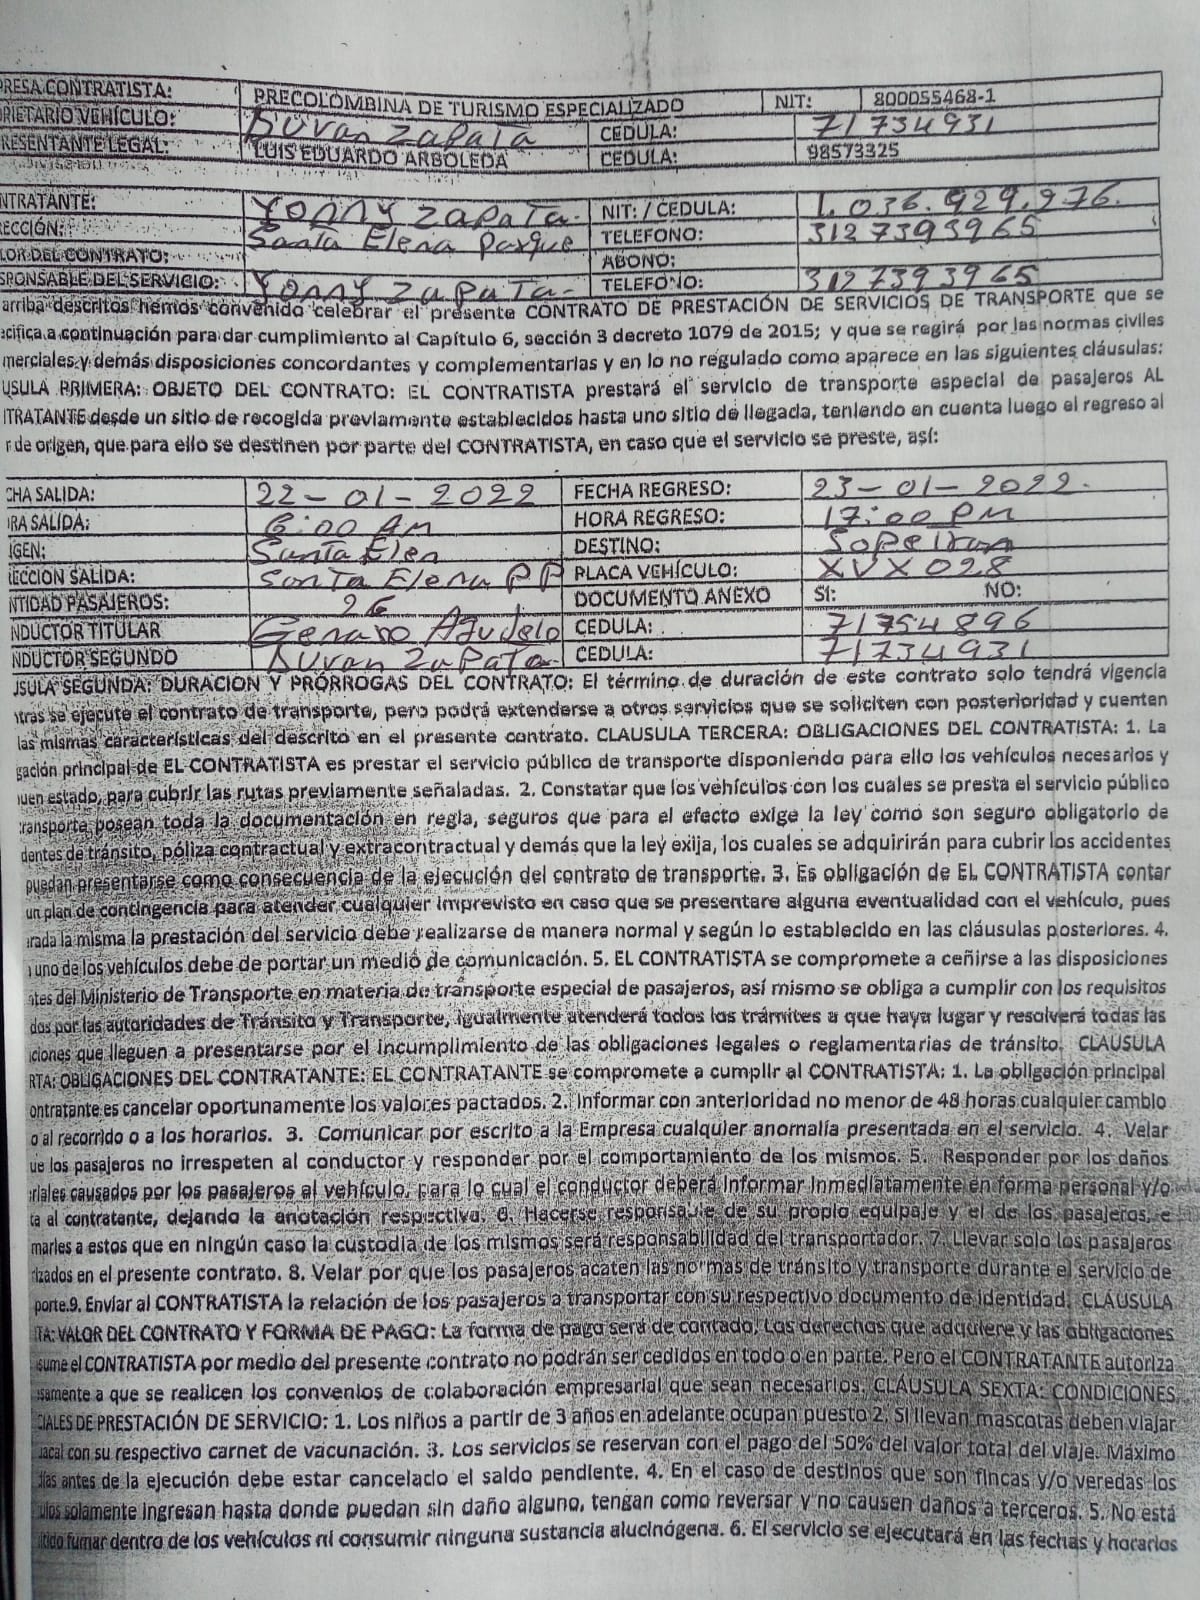 PRESA CONTRATISTA: PRECOLOMBINA DE TURISMO ESPECIALIZADO NIT: 800055468-1
PRIETARIO VEHÍCULO: Duvan Zapata CEDULA: 71734931
RESENTANTE LEGAL: LUIS EDUARDO ARBOLEDA CEDULA: 98573325
NTRATANTE: Yonny Zapata. NIT: / CEDULA: 1.036.929.976.
ECCIÓN: Santa Elena Parque TELEFONO: 3127393965
LOR DEL CONTRATO: ABONO:
SPONSABLE DEL SERVICIO: Yonny Zapata- TELEFONO: 3127393965
arriba descritos hemos convenido celebrar el presente CONTRATO DE PRESTACIÓN DE SERVICIOS DE TRANSPORTE que se
ecifica a continuación para dar cumplimiento al Capítulo 6, sección 3 decreto 1079 de 2015; y que se regirá por las normas civiles
merciales y demás disposiciones concordantes y complementarias y en lo no regulado como aparece en las siguientes cláusulas:
USULA PRIMERA: OBJETO DEL CONTRATO: EL CONTRATISTA prestará el servicio de transporte especial de pasajeros AL
ITRATANTE desde un sitio de recogida previamente establecidos hasta uno sitio de llegada, teniendo en cuenta luego el regreso al
r de origen, que para ello se destinen por parte del CONTRATISTA, en caso que el servicio se preste, así:
CHA SALIDA: 22-01-2022 FECHA REGRESO: 23-01-2022.
RA SALIDA: 6:00 AM HORA REGRESO: 17:00 PM
IGEN: Santa Elen DESTINO: Sopetran
ECCION SALIDA: Santa Elena PP PLACA VEHÍCULO: XVX028
NTIDAD PASAJEROS: 26 DOCUMENTO ANEXO SI: NO:
NDUCTOR TITULAR Genaro Agudelo CEDULA: 71754896
NDUCTOR SEGUNDO Duvan Zapata- CEDULA: 71734931
USULA SEGUNDA: DURACION Y PRÓRROGAS DEL CONTRATO: El término de duración de este contrato solo tendrá vigencia
ntras se ejecute el contrato de transporte, pero podrá extenderse a otros servicios que se soliciten con posterioridad y cuenten
las mismas características del descrito en el presente contrato. CLAUSULA TERCERA: OBLIGACIONES DEL CONTRATISTA: 1. La
gación principal de EL CONTRATISTA es prestar el servicio público de transporte disponiendo para ello los vehículos necesarios y
uen estado, para cubrir las rutas previamente señaladas. 2. Constatar que los vehículos con los cuales se presta el servicio público
transporte posean toda la documentación en regla, seguros que para el efecto exige la ley como son seguro obligatorio de
dentes de tránsito, póliza contractual y extracontractual y demás que la ley exija, los cuales se adquirirán para cubrir los accidentes
puedan presentarse como consecuencia de la ejecución del contrato de transporte. 3. Es obligación de EL CONTRATISTA contar
un plan de contingencia para atender cualquier imprevisto en caso que se presentare alguna eventualidad con el vehículo, pues
arada la misma la prestación del servicio debe realizarse de manera normal y según lo establecido en las cláusulas posteriores. 4.
uno de los vehículos debe de portar un medio de comunicación. 5. EL CONTRATISTA se compromete a ceñirse a las disposiciones
ntes del Ministerio de Transporte en materia de transporte especial de pasajeros, así mismo se obliga a cumplir con los requisitos
dos por las autoridades de Tránsito y Transporte, igualmente atenderá todos los trámites a que haya lugar y resolverá todas las
ciones que lleguen a presentarse por el incumplimiento de las obligaciones legales o reglamentarias de tránsito. CLAUSULA
RTA: OBLIGACIONES DEL CONTRATANTE: EL CONTRATANTE se compromete a cumplir al CONTRATISTA: 1. La obligación principal
ontratante es cancelar oportunamente los valores pactados. 2. Informar con anterioridad no menor de 48 horas cualquier cambio
o al recorrido o a los horarios. 3. Comunicar por escrito a la Empresa cualquier anomalía presentada en el servicio. 4. Velar
ue los pasajeros no irrespeten al conductor y responder por el comportamiento de los mismos. 5. Responder por los daños
eriales causados por los pasajeros al vehículo, para lo cual el conductor deberá informar inmediatamente en forma personal y/o
ta al contratante, dejando la anotación respectiva. 6. Hacerse responsable de su propio equipaje y el de los pasajeros, e
marles a estos que en ningún caso la custodia de los mismos será responsabilidad del transportador. 7. Llevar solo los pasajeros
rizados en el presente contrato. 8. Velar por que los pasajeros acaten las normas de tránsito y transporte durante el servicio de
porte.9. Enviar al CONTRATISTA la relación de los pasajeros a transportar con su respectivo documento de identidad. CLÁUSULA
TA: VALOR DEL CONTRATO Y FORMA DE PAGO: La forma de pago será de contado, Los derechos que adquiere y las obligaciones
sume el CONTRATISTA por medio del presente contrato no podrán ser cedidos en todo o en parte. Pero el CONTRATANTE autoriza
samente a que se realicen los convenios de colaboración empresarial que sean necesarios. CLÁUSULA SEXTA: CONDICIONES
CIALES DE PRESTACIÓN DE SERVICIO: 1. Los niños a partir de 3 años en adelante ocupan puesto 2. Si llevan mascotas deben viajar
uacal con su respectivo carnet de vacunación. 3. Los servicios se reservan con el pago del 50% del valor total del viaje. Máximo
días antes de la ejecución debe estar cancelado el saldo pendiente. 4. En el caso de destinos que son fincas y/o veredas los
ulos solamente ingresan hasta donde puedan sin daño alguno, tengan como reversar y no causen daños a terceros. 5. No está
itido fumar dentro de los vehículos ni consumir ninguna sustancia alucinógena. 6. El servicio se ejecutará en las fechas y horarios